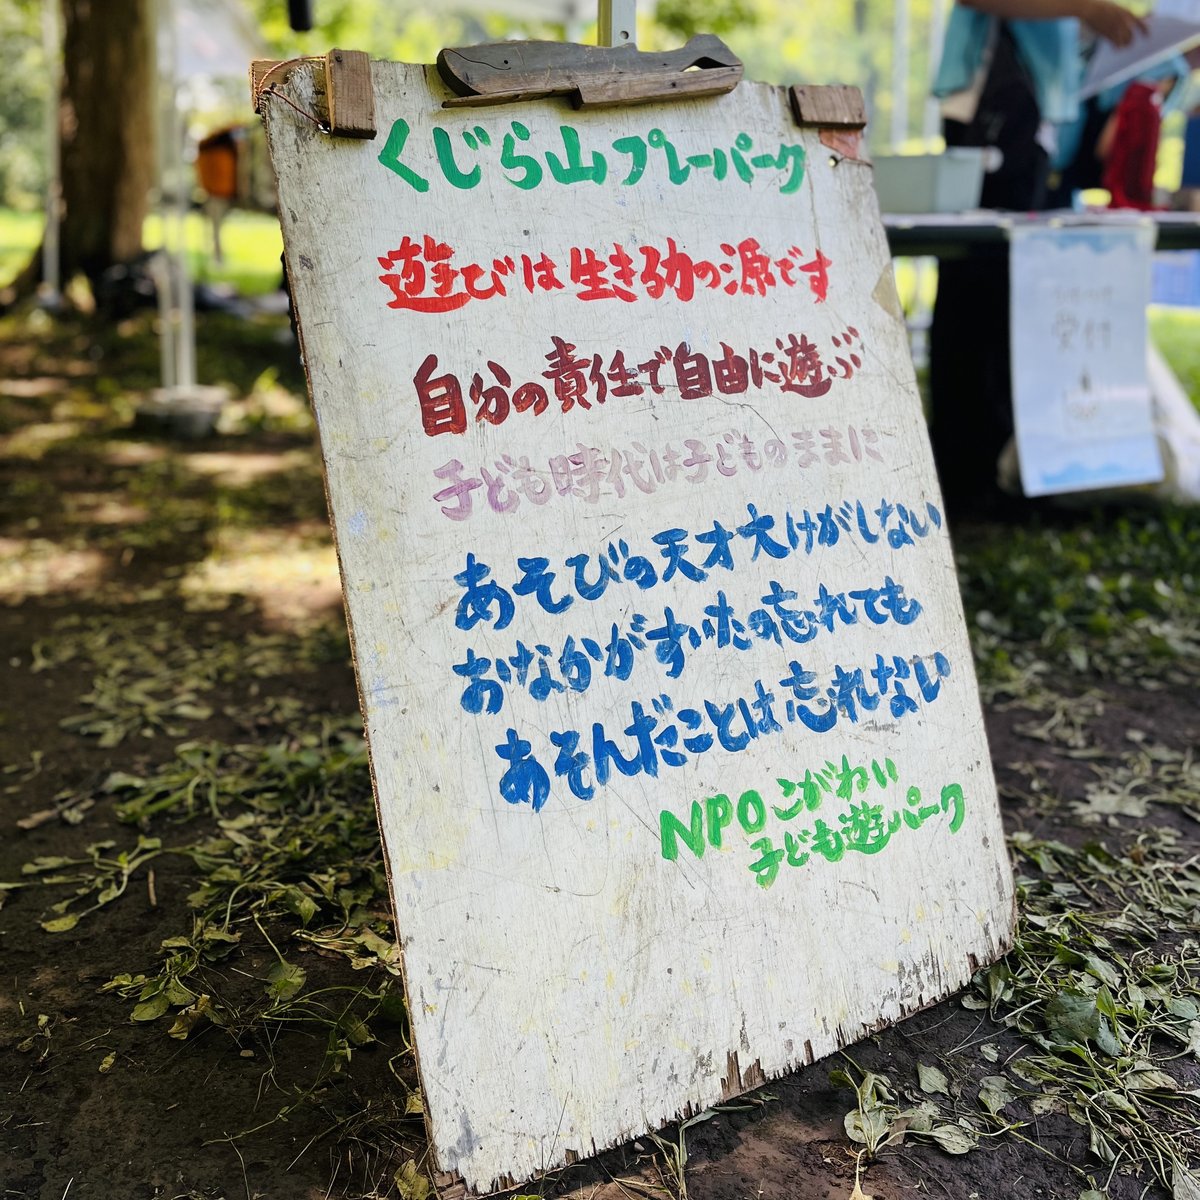 くじら山プレーパーク
遊びは生きる力の源です
自分の責任で自由に遊ぶ
子ども時代は子どものままに
あそびの天才大けがしない
おなかがすいたの忘れても
あそんだことは忘れない
NPOこがねい
子ども遊パーク
受付